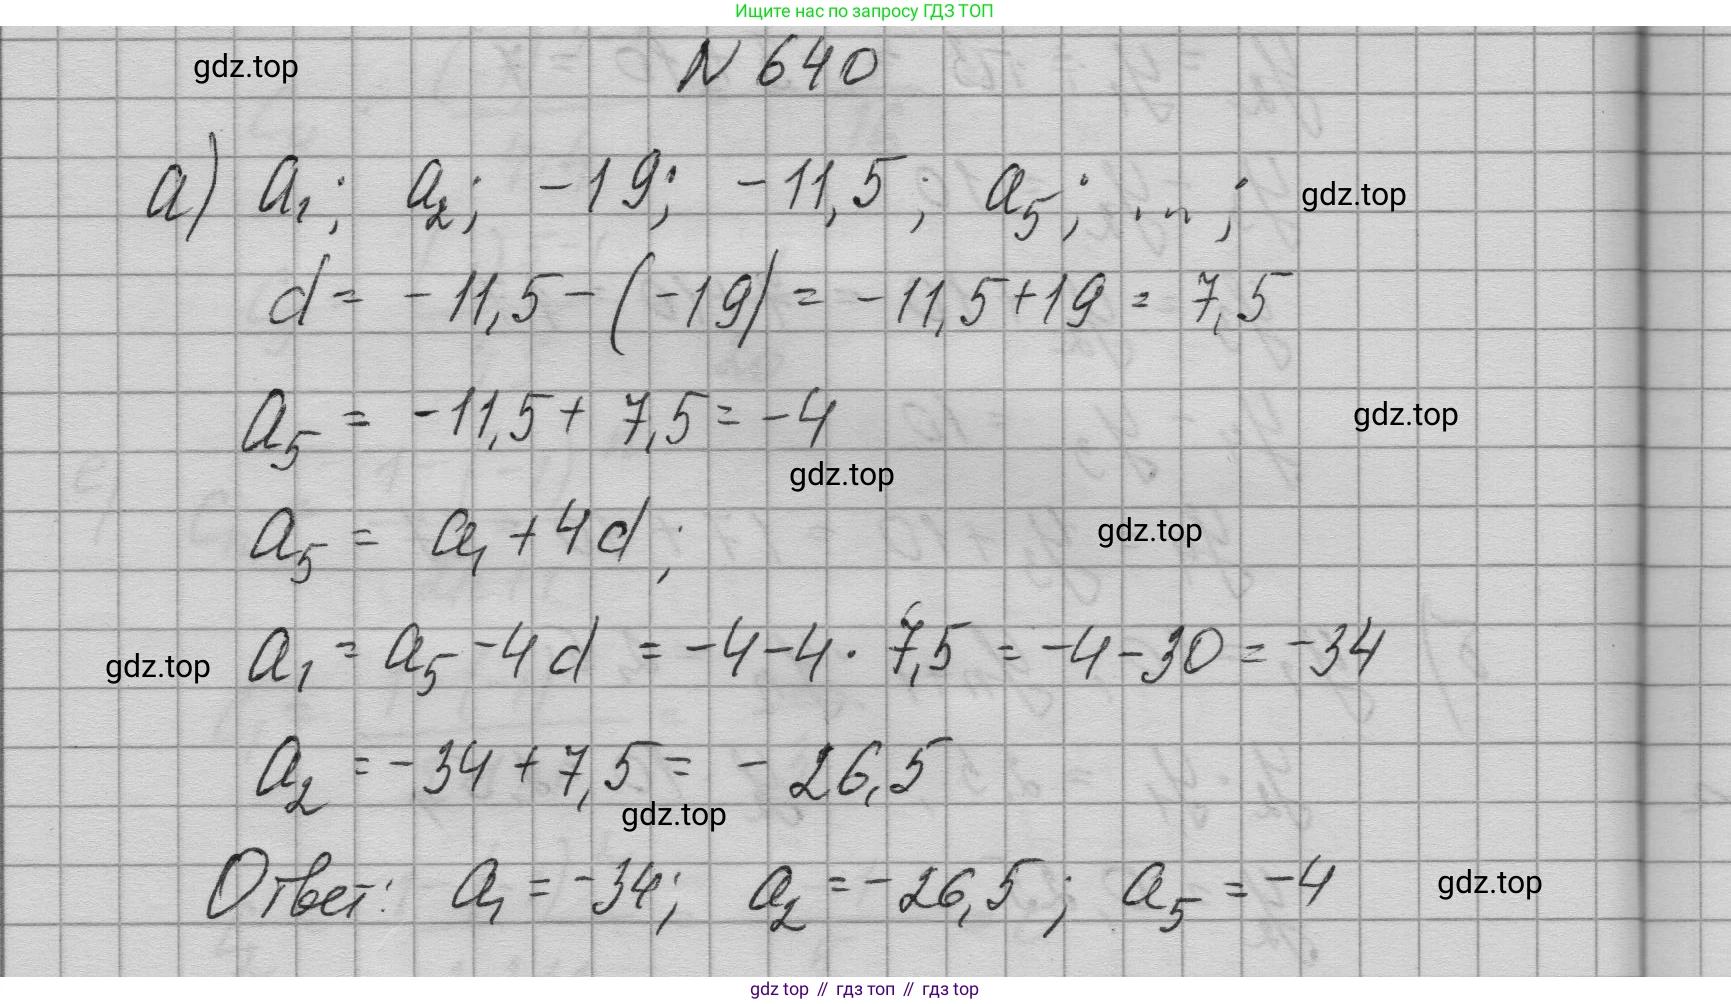 Ищите нас по запросу ГДЗ ТОП
gdz.top N 640
а) a₁; a₂; -19; -11,5; a₅; ...; gdz.top
d = -11,5 - (-19) = -11,5 + 19 = 7,5
a₅ = -11,5 + 7,5 = -4 gdz.top
gdz.top
a₅ = a₁ + 4d; gdz.top
gdz.top a₁ = a₅ - 4d = -4 - 4 · 7,5 = -4 - 30 = -34
a₂ = -34 + 7,5 = -26,5
gdz.top
Ответ: a₁ = -34; a₂ = -26,5; a₅ = -4 gdz.top
gdz top // гдз топ // gdz top